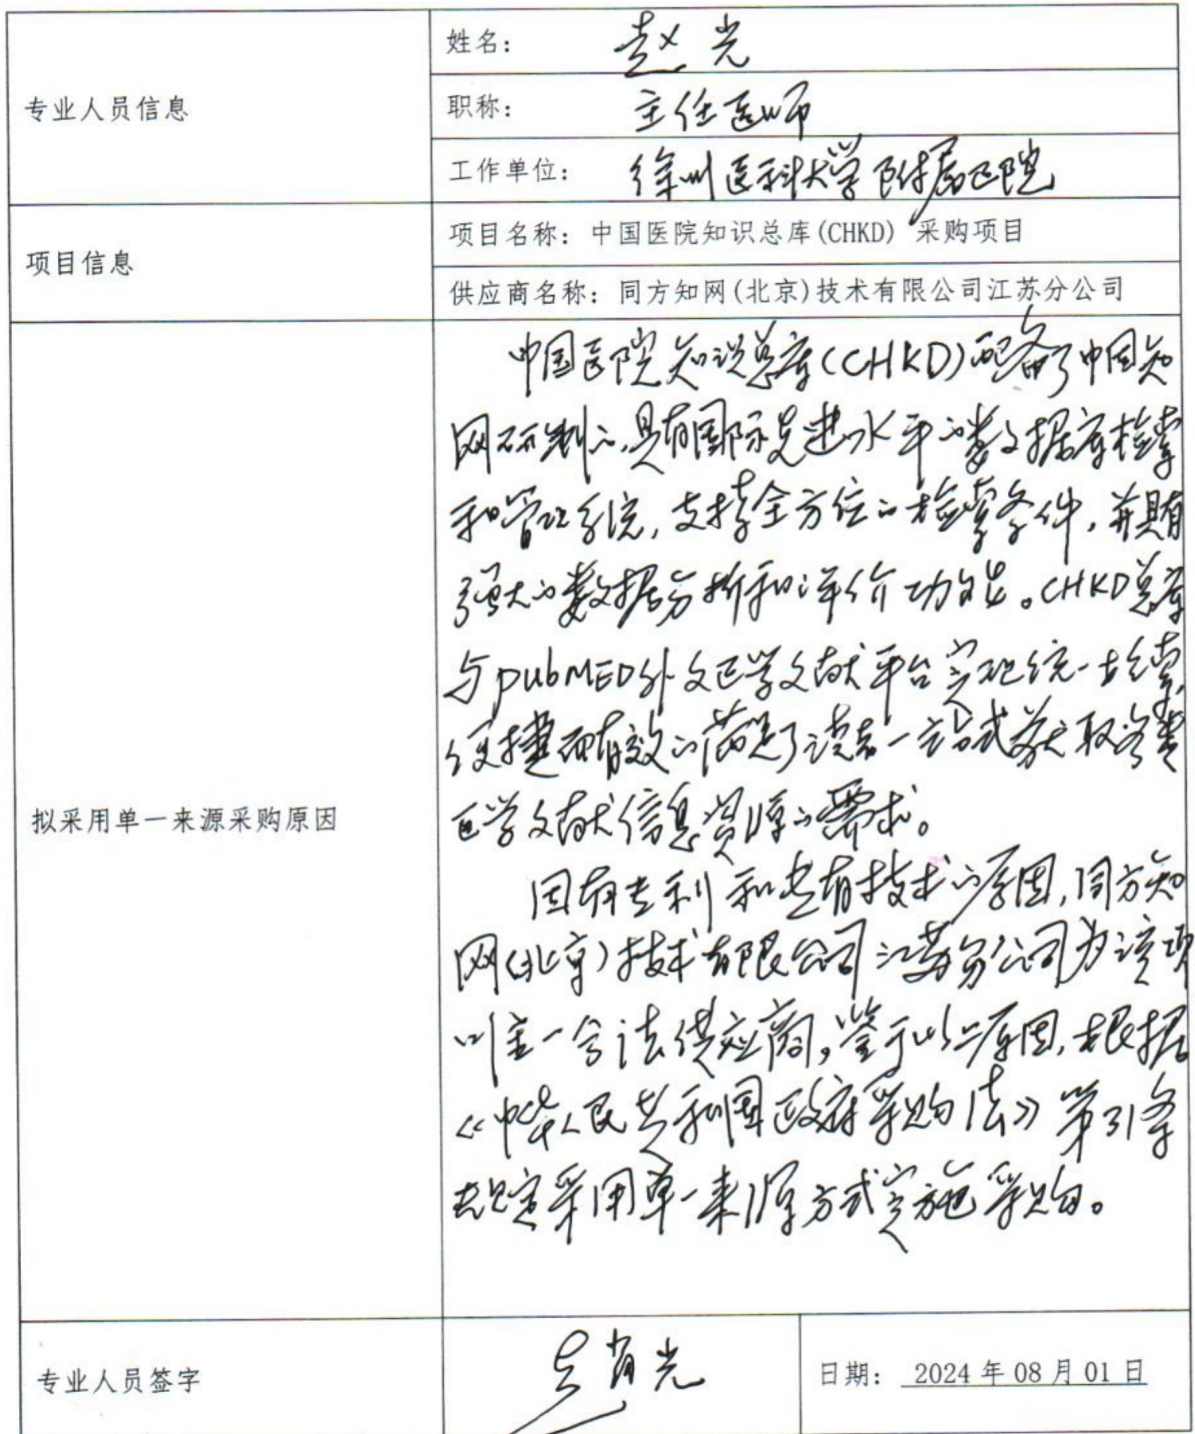 姓名： 赵光
专业人员信息
职称： 主任医师
工作单位： 徐州医科大学附属医院
项目信息
项目名称：中国医院知识总库(CHKD) 采购项目
供应商名称：同方知网(北京)技术有限公司江苏分公司
拟采用单一来源采购原因
中国医院知识总库(CHKD)配备了中国知
网研制的,具有国际先进水平的数据库检索
和管理系统,支持全方位的检索条件,并具有
强大的数据分析和评价功能。CHKD总库
与pubMED外文医学文献平台实现统一检索,
便捷而有效的满足了读者一站式获取各类
医学文献信息资源的需求。
因有专利和专有技术的原因,同方知
网(北京)技术有限公司江苏分公司为该项
的唯一合法供应商,鉴于以上原因,根据
《中华人民共和国政府采购法》第31条
规定采用单一来源方式实施采购。
专业人员签字
赵光
日期： 2024年08月01日